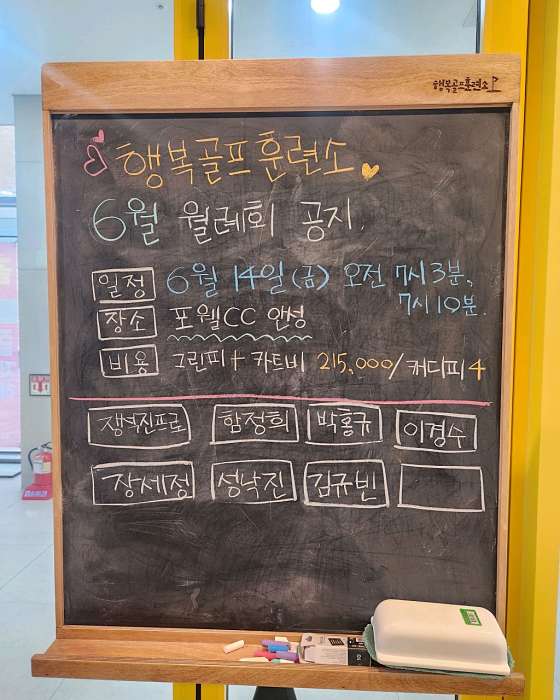 행복골프훈련소
행복골프훈련소
6월 월례회 공지.
일정 6월 14일 (금) 오전 7시 3분,
7시 10분.
장소 포웰CC 안성
비용 그린피 + 카트비 215,000/캐디피 4
쟁억진프로 함정희 박홍규 이경수
장세정 성낙진 김규빈